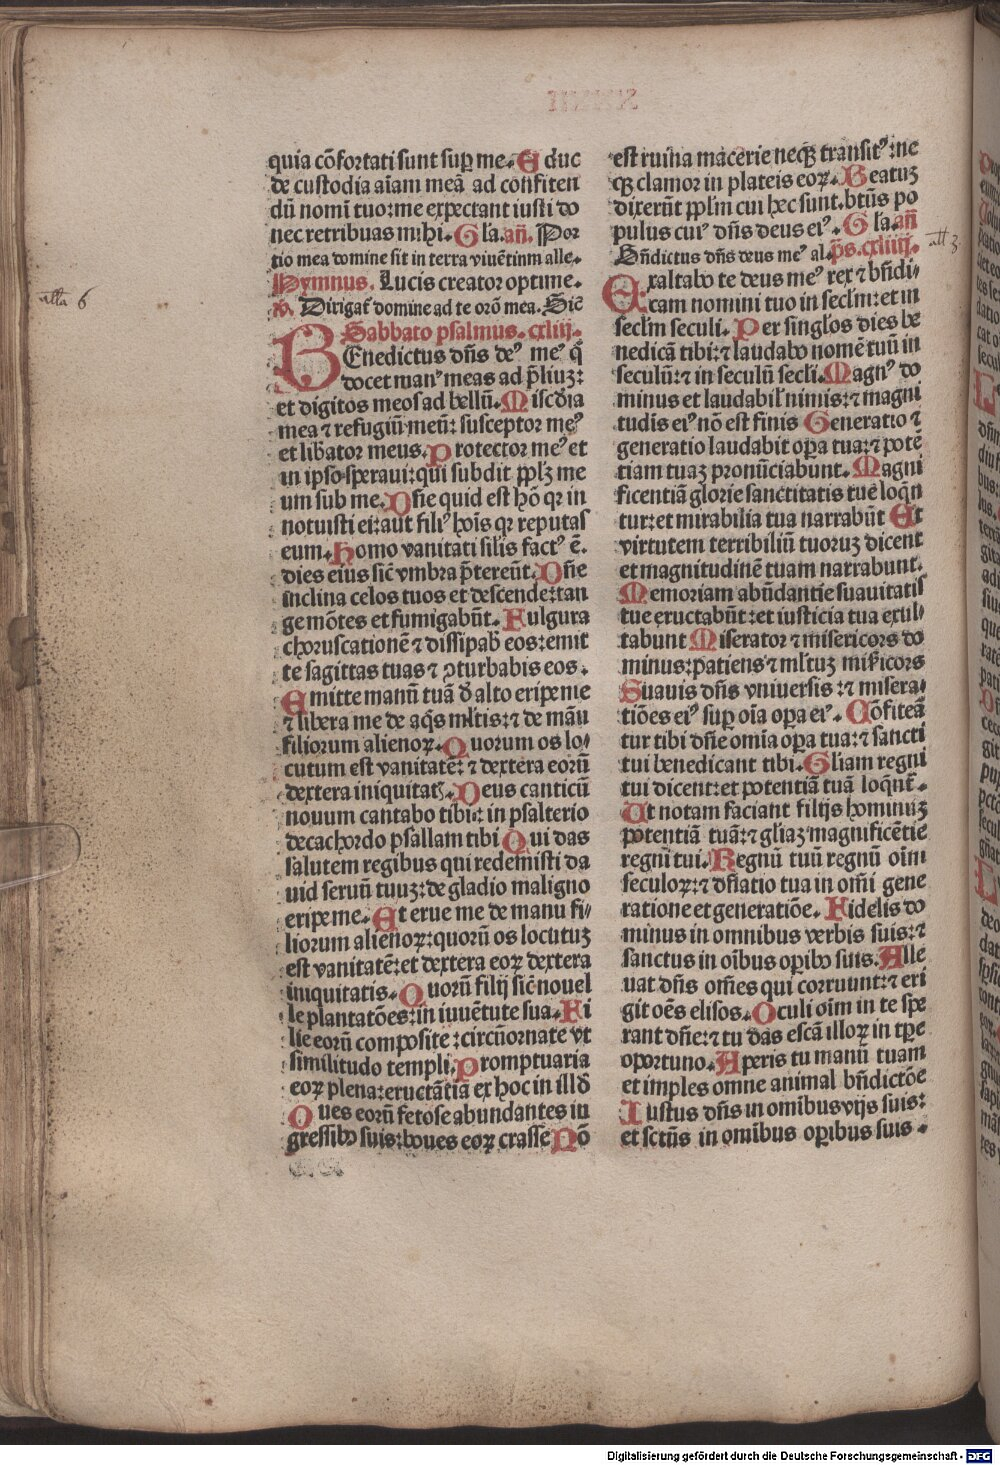 quia cōfortati sunt sup me. E duc
de custodia aīam meā ad confiten
dū nomī tuo:me expectant iusti do
nec retribuas mihi. Gla. añ. Por
tio mea domine sit in terra viuētium alle.
Hymnus. Lucis creator optime.
v. Dirigat̄ domine ad te orō mea. Sic̄
Sabbato psalmus. cxliij.
BEnedictus dn̄s deꝰ meꝰ q̄
docet manꝰ meas ad p̄liuꝫ:
et digitos meos ad bellū. Miscdīa
mea ⁊ refugiū meū: susceptor meꝰ
et libator meus. Protector meꝰ et
in ipso speraui: qui subdit pp̄lꝫ me
um sub me. Dn̄e quid est hō qꝛ in
notuisti ei: aut filiꝰ hoīs qꝛ reputas
eum. Homo vanitati sil̄is factꝰ ē.
dies eius sic̄ vmbra p̄tereūt. Dn̄e
inclina celos tuos et descende: tan
ge mōtes et fumigabūt. Fulgura
choruscationē ⁊ dissipab̄ eos: emit
te sagittas tuas ⁊ ꝯturbabis eos.
Emitte manū tuā d̄ alto eripe me
⁊ libera me de aq̄s ml̄tis: ⁊ de māu
filiorum alienoꝝ. Quorum os lo
cutum est vanitatē: ⁊ dextera eorū
dextera iniquitatꝭ. Deus canticū
nouum cantabo tibi: in psalterio
decachordo psallam tibi Qui das
salutem regibus qui redemisti da
uid seruū tuuꝫ: de gladio maligno
eripe me. Et erue me de manu fi
liorum alienoꝝ: quorū os locutuꝫ
est vanitatē: et dextera eoꝝ dextera
iniquitatis. Quorū filij sic̄ nouel
le plantatōes: in iuuētute sua. Fi
lie eorū composite: circūornate vt
similitudo templi. Promptuaria
eoꝝ plena: eructātia ex hoc in illd̄
Oues eorū fetose abundantes in
gressibꝰ suis: boues eoꝝ crasse Nō
est ruina macerie neqꝫ transitꝰ: ne
qꝫ clamor in plateis eoꝝ. Beatuꝫ
dixerūt pp̄lm cui hec sunt. btūs po
pulus cuiꝰ dn̄s deus eiꝰ. Gla. añ
Bn̄dictus dn̄s deus meꝰ al. ps. cxliiij.
Exaltabo te deus meꝰ rex ⁊ bn̄di
cam nomini tuo in secl̄m: et in
secl̄m seculi. Per singl̄os dies be
nedicā tibi: ⁊ laudabo nomē tuū in
seculū: ⁊ in seculū secl̄i. Magnꝰ do
minus et laudabil̄ nimis: ⁊ magni
tudis eiꝰ nō est finis Generatio ⁊
generatio laudabit opa tua: ⁊ potē
tiam tuaꝫ pronūciabunt. Magni
ficentiā glorie sanctitatis tue loqn̄
tur: et mirabilia tua narrabūt Et
virtutem terribiliū tuoruꝫ dicent
et magnitudinē tuam narrabunt.
Memoriam abūdantie suauitatis
tue eructabūt: et iusticia tua exul
tabunt Miserator ⁊ misericors do
minus: patiens ⁊ ml̄tuꝫ mis̄icors
Suauis dn̄s vniuersis: ⁊ misera
tiōes eiꝰ sup oīa opa eiꝰ. Cōfiteā
tur tibi dn̄e omīa opa tua: ⁊ sancti
tui benedicant tibi. Gl̄iam regni
tui dicent: et potentiā tuā loqn̄t.
Ut notam faciant filijs hominuꝫ
potentiā tuā: ⁊ gl̄iaꝫ magnificētie
regni tui. Regnū tuū regnū oīm
seculoꝝ: ⁊ dn̄atio tua in om̄i gene
ratione et generatiōe. Fidelis do
minus in omnibus verbis suis: ⁊
sanctus in oībus opibꝰ suis. Alle
uat dn̄s om̄es qui corruunt: ⁊ eri
git oēs elisos. Oculi oīm in te spe
rant dn̄e: ⁊ tu das escā illoꝝ in tp̄e
oportuno. Aperis tu manū tuam
et imples omne animal bn̄dictōe
Iustus dn̄s in omībus vijs suis:
et sctūs in omībus opibus suis.
Digitalisierung gefördert durch die Deutsche Forschungsgemeinschaft - DFG